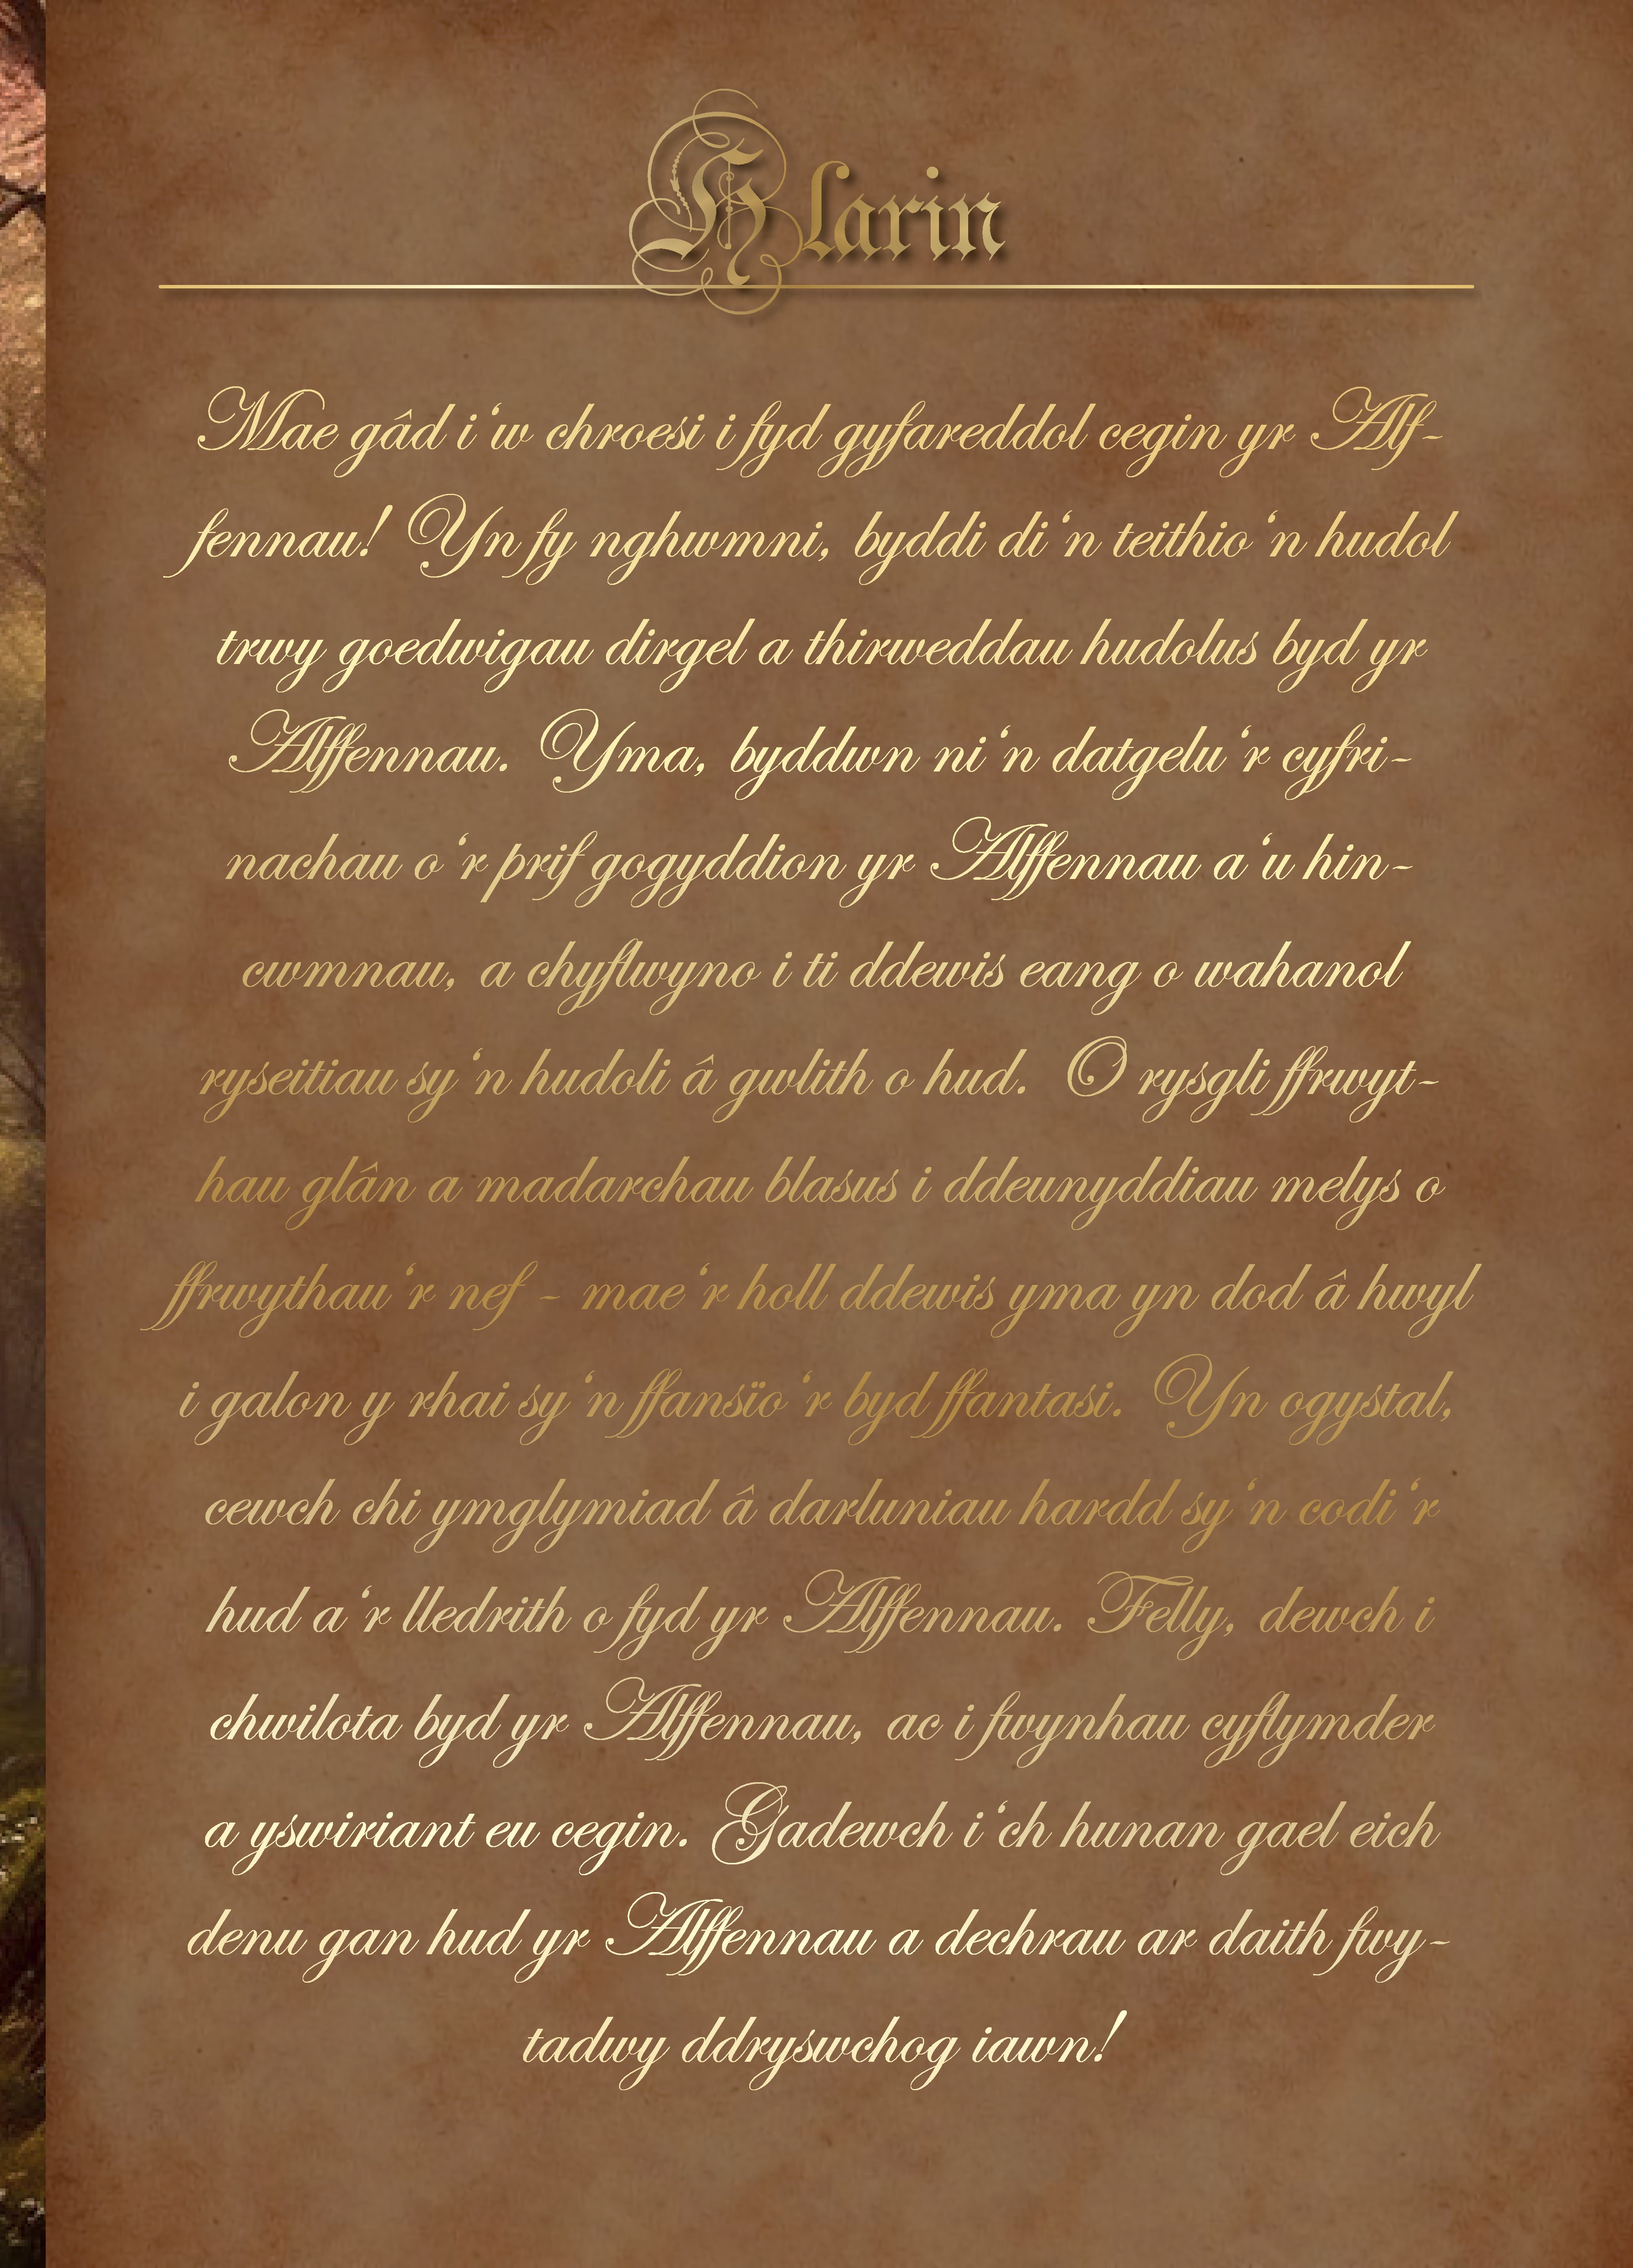 Hlarin
Mae gâd i‘w chroesi i fyd gyfareddol cegin yr Alf-
fennau! Yn fy nghwmni, byddi di‘n teithio‘n hudol
trwy goedwigau dirgel a thirweddau hudolus byd yr
Alffennau. Yma, byddwn ni‘n datgelu‘r cyfri-
nachau o‘r prif gogyddion yr Alffennau a‘u hin-
cwmnau, a chyflwyno i ti ddewis eang o wahanol
ryseitiau sy‘n hudoli â gwlith o hud. O rysgli ffrwyt-
hau glân a madarchau blasus i ddeunyddiau melys o
ffrwythau‘r nef - mae‘r holl ddewis yma yn dod â hwyl
i galon y rhai sy‘n ffansïo‘r byd ffantasi. Yn ogystal,
cewch chi ymglymiad â darluniau hardd sy‘n codi‘r
hud a‘r lledrith o fyd yr Alffennau. Felly, dewch i
chwilota byd yr Alffennau, ac i fwynhau cyflymder
a yswiriant eu cegin. Gadewch i‘ch hunan gael eich
denu gan hud yr Alffennau a dechrau ar daith fwy-
tadwy ddryswchog iawn!